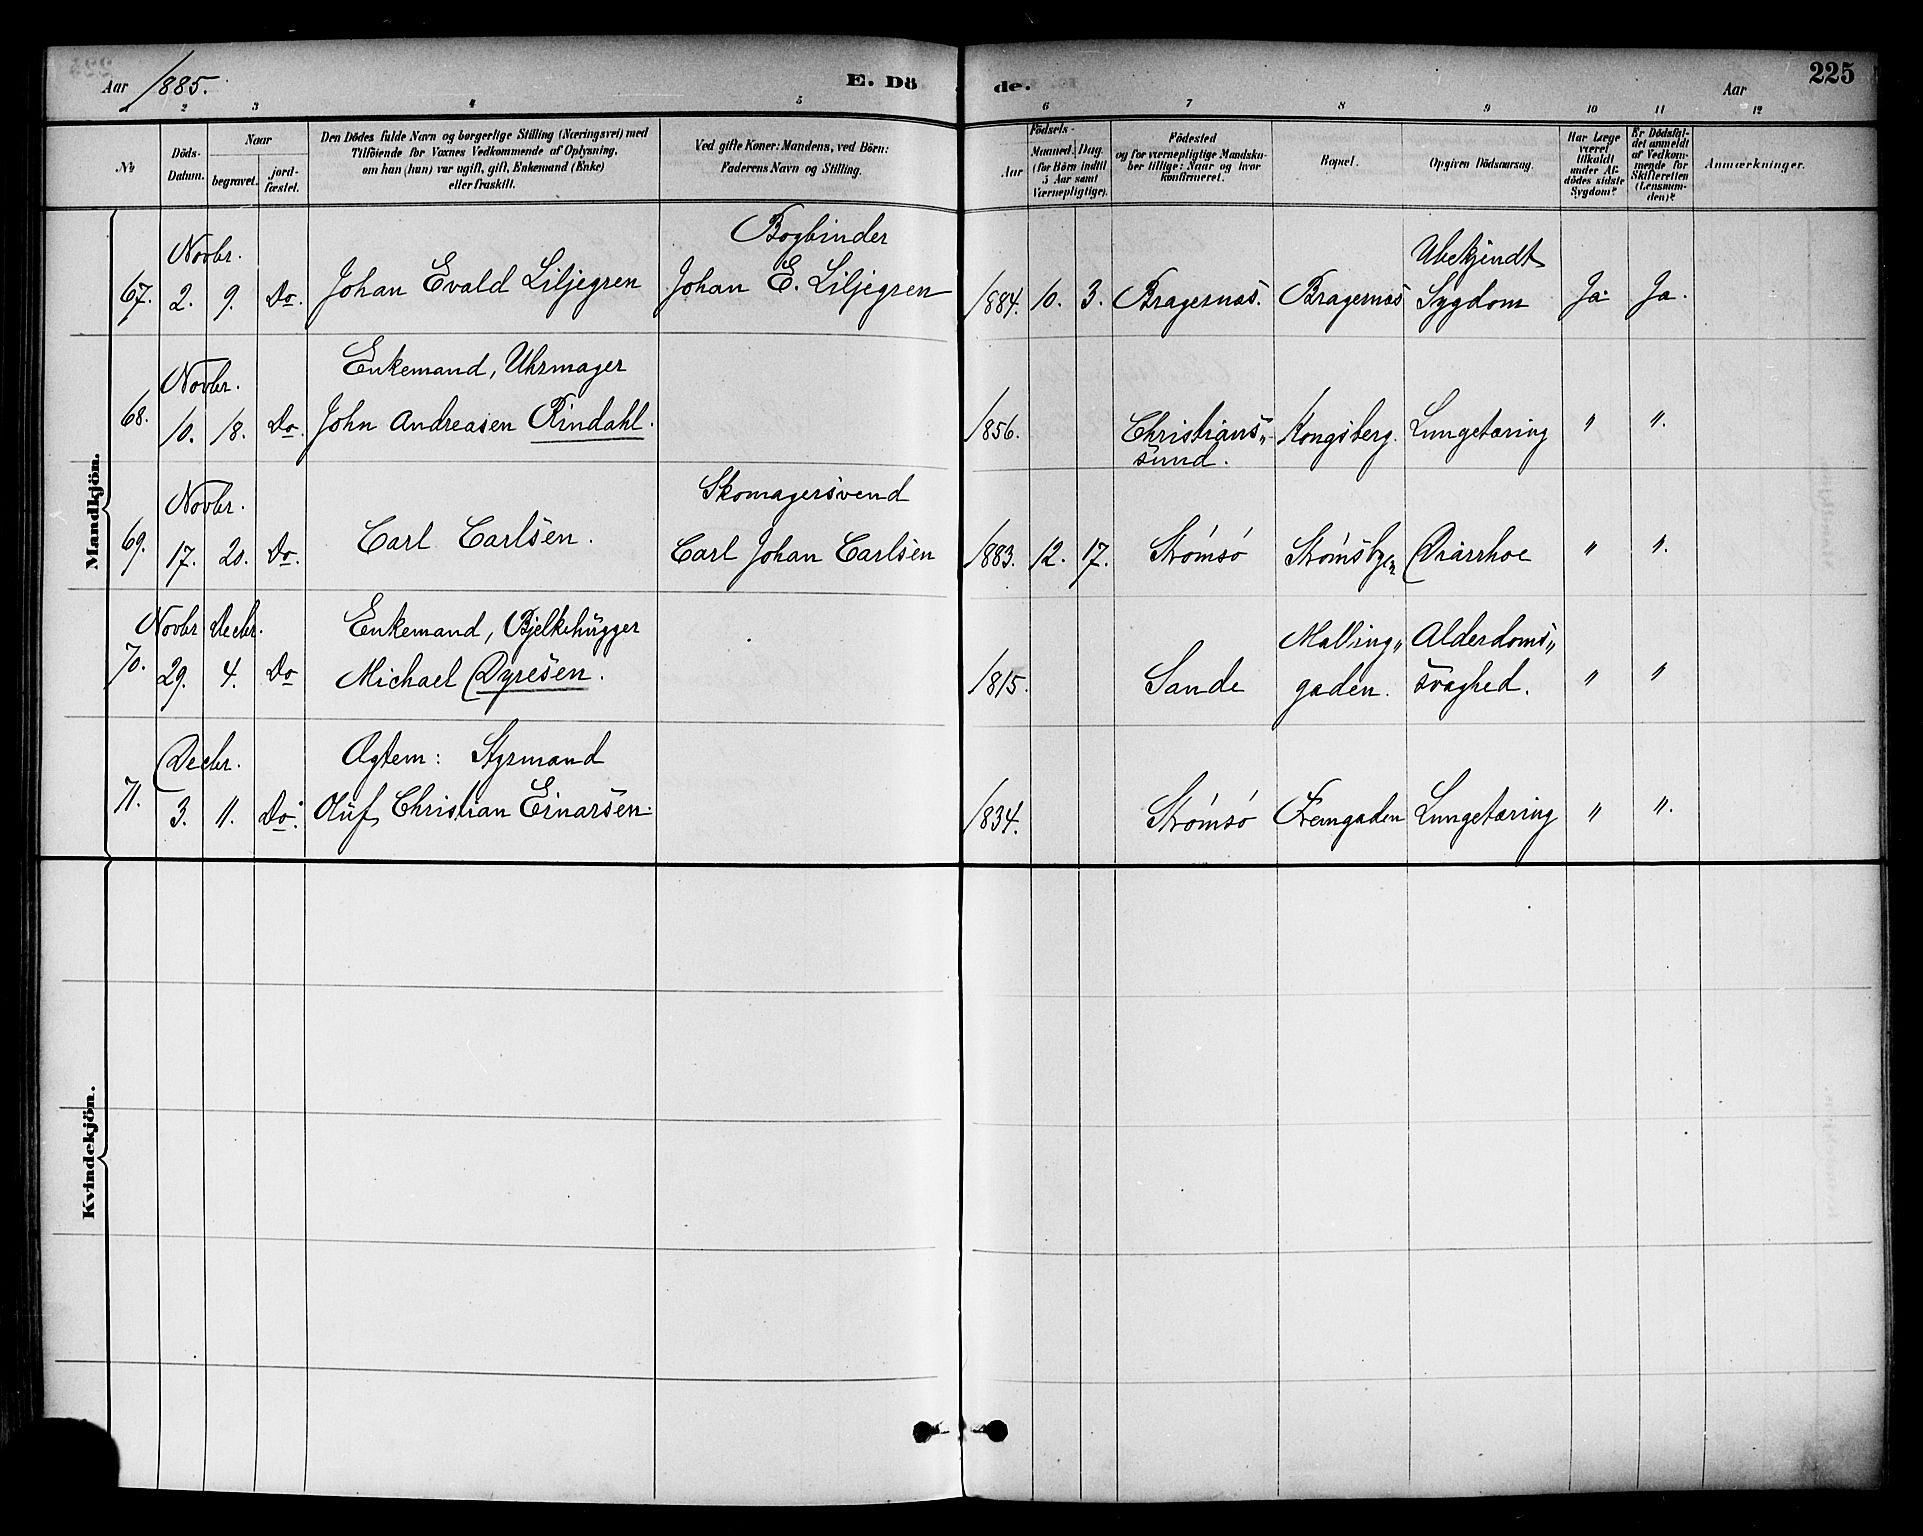 Aar 1885. E. Dö de. Aar 225
2 3 4 5 6 7 8 9 10 11 12
No
Döds-
Datum.
Naar
begravet.
jord-
fæstet.
Den Dödes fulde Navn og borgerlige Stilling (Næringsvei) med
Tilföiende for Voxnes Vedkommende af Oplysning,
om han (hun) var ugift, gift, Enkemand (Enke)
eller fraskilt.
Ved gifte Koner: Mandens, ved Börn:
Faderens Navn og Stilling.
Födsels-
Aar
Maaned. Dag.
(for Börn indtil
5 Aar samt
Værnepligtige).
Födested
og for værnepligtige Mandska-
ber tillige: Naar og hvor
konfirmeret.
Bopæl.
Opgiven Dödsaarsag.
Har Læge
været
tilkaldt
under Af-
dödes sidste
Sygdom?
Er Dödsfal-
det anmeldt
af Vedkom-
mende for
Skifteretten
(Lensman-
den)?
Anmærkninger.
Mandkjön.
Novbr. Bogbinder Ubekjendt
67. 2. 9. Do. Johan Evald Liljegren Johan E. Liljegren 1884. 10. 3. Bragernæs. Bragernæs Sygdom Ja. Ja.
Novbr. Enkemand, Uhrmager
68. 10. 18. Do. John Andreasen Rindahl. 1856. Christians„ Kongsberg. Lungetæring " ".
sund.
Novbr. Skomagersvend
69. 17. 20. Do. Carl Carlsen. Carl Johan Carlsen 1883. 12. 17. Strømsø Strømsbyen Diarrhoe " ".
Novbr Decbr. Enkemand, Bjelkehugger Malling„ Alderdoms„
70. 29. 4. Do Michael Dyresen. 1815. Sande gaden. svaghed. " "
Decbr. Ægtem: Styrmand
71. 3. 11. Do. Oluf Christian Einarsen. 1834. Strømsø Fremgaden Lungetæring " ".
Kvindekjön.